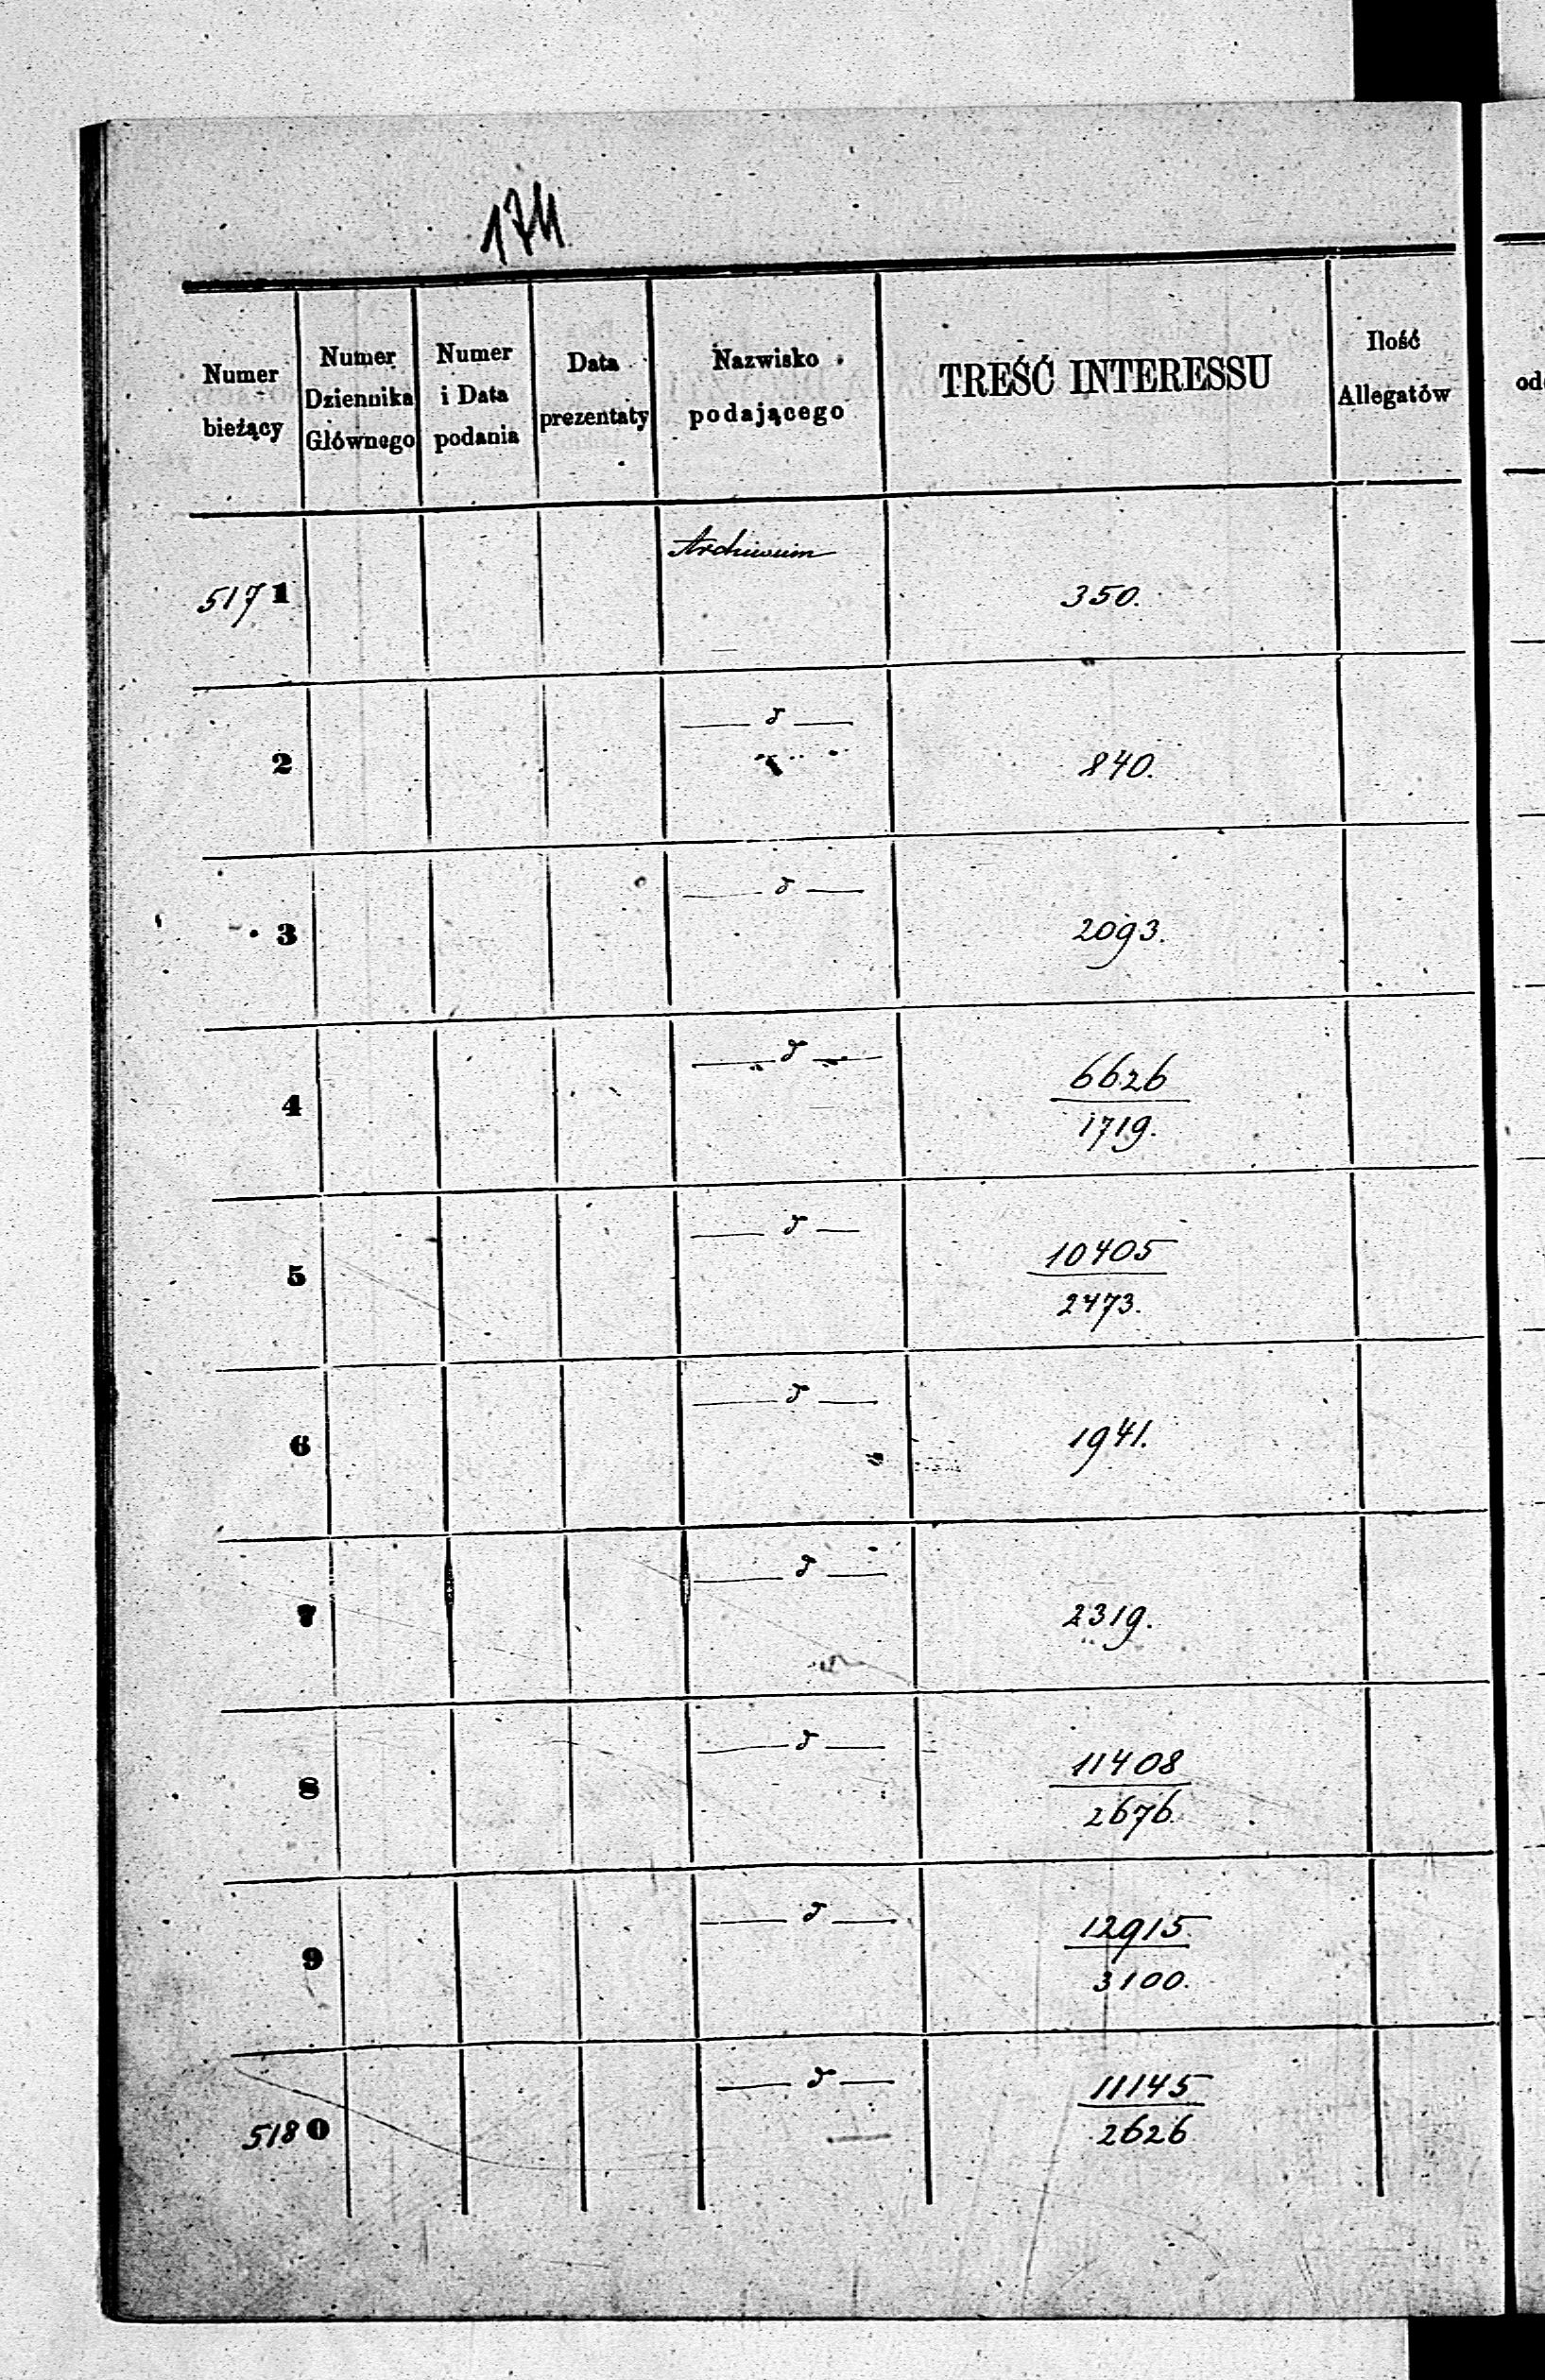 174
Numer bieżący | Numer Dziennika Głównego | Numer i Data podania | Data prezentaty | Nazwisko podającego | TREŚĆ INTERESSU | Ilość Allegatów
5171 | Archiwum | 350.
2 | — d — | 840.
3 | — d — | 2093.
4 | — d — | 6626
1719.
5 | — d — | 10405
2473.
6 | — d — | 1941.
7 | — d — | 2319.
8 | — d — | 11408
2676.
9 | — d — | 12915
3100.
5180 | — d — | 11145
2626